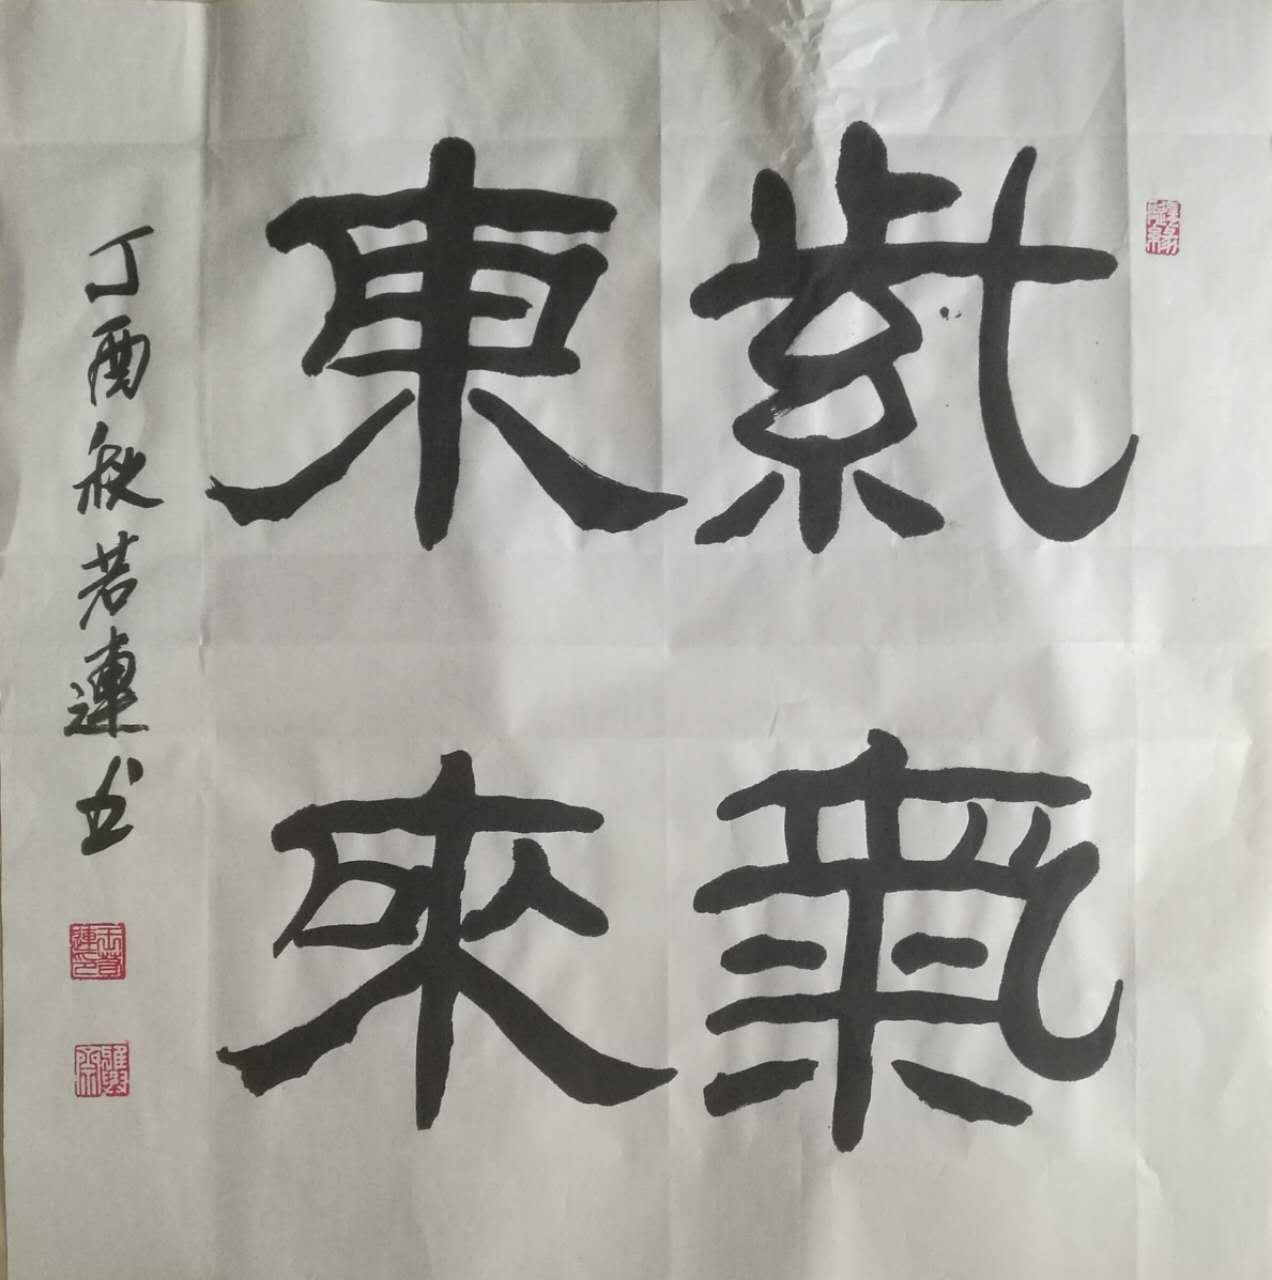 紫氣
東來
丁酉秋若連书